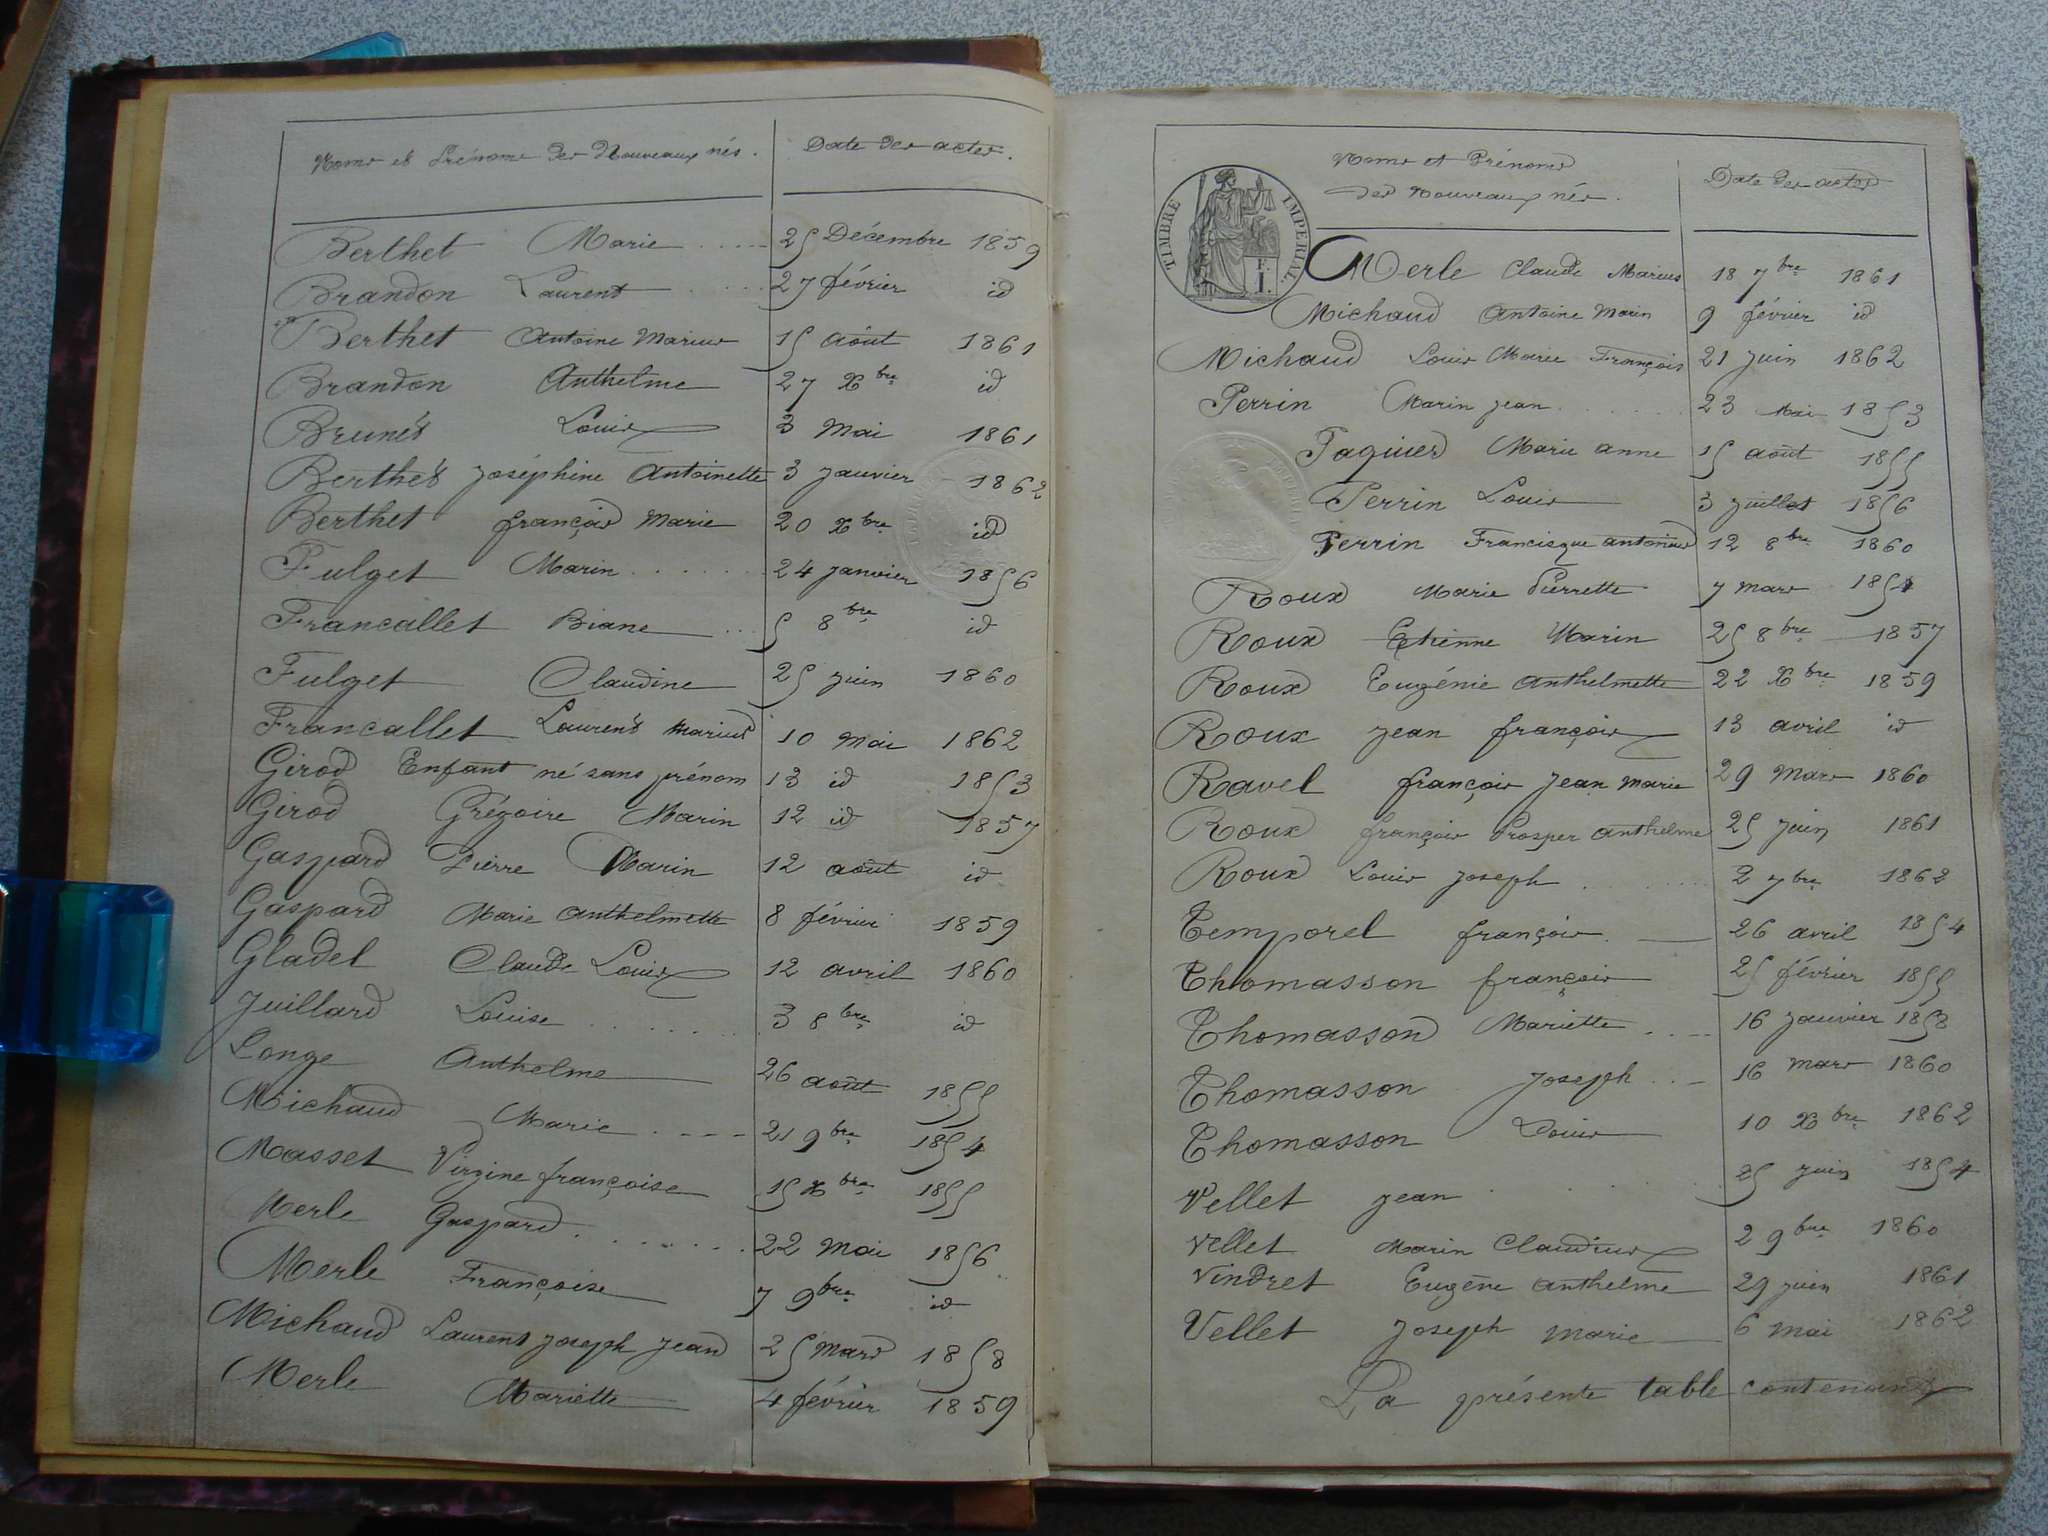 Noms et Prénoms des Nouveaux nés. Date des actes.
Berthet Marie 25 Décembre 1859
Brandon Laurent 27 février id
Berthet Antoine Marius 15 août 1861
Brandon Anthelme 27 Xbre id
Brunet Louis 3 Mai 1861
Berthet Joséphine Antoinette 3 Janvier 1862
Berthet françois Marie 20 Xbre id
Fulget Marin 24 janvier 1856
Francallet Biane 5 8bre id
Fulget Claudine 25 juin 1860
Francallet Laurent Marius 10 Mai 1862
Girod Enfant né sans prénom 13 id 1853
Girod Grégoire Marin 12 id 1857
Gaspard Pierre Marin 12 août id
Gaspard Marie Anthelmette 8 février 1859
Gladel Claude Louis 12 avril 1860
Juillard Louise 3 8bre id
Longe Anthelme 26 août 1855
Michaud Marie 21 9bre 1854
Masset Virgine françoise 15 Xbre 1855
Merle Gaspard 22 Mai 1856
Merle Françoise 7 9bre id
Michaud Laurent Joseph Jean 25 Mars 1858
Merle Mariette 4 février 1859
TIMBRE IMPERIAL
F.
1.
Noms et Prénoms
des Nouveaux nés. Date des actes
Merle Claude Marius 18 7bre 1861
Michaud Antoine Marin 9 février id
Michaud Louis Marie François 21 Juin 1862
Perrin Marin Jean 23 Mai 1853
Paquier Marie anne 15 août 1855
Perrin Louis 3 juillet 1856
Perrin Francisque 12 8bre 1860
Roux Marie Pierrette 7 mars 1854
Roux Etienne Marin 25 8bre 1857
Roux Eugénie Anthelmette 22 Xbre 1859
Roux Jean françois 13 avril id
Ravel françois Jean Marie 29 Mars 1860
Roux françois Prosper Anthelme 25 Juin 1861
Roux Louis Joseph 2 7bre 1862
Temporel françois 26 avril 1854
Thomasson françois 25 février 1855
Thomasson Mariette 16 Janvier 1858
Thomasson Joseph 16 mars 1860
Thomasson Louis 10 Xbre 1862
Vellet Jean 25 Juin 1854
Vellet Marin Claudius 2 9bre 1860
Vindret Eugène Anthelme 29 Juin 1861
Vellet Joseph Marie 6 Mai 1862
La présente table contenant